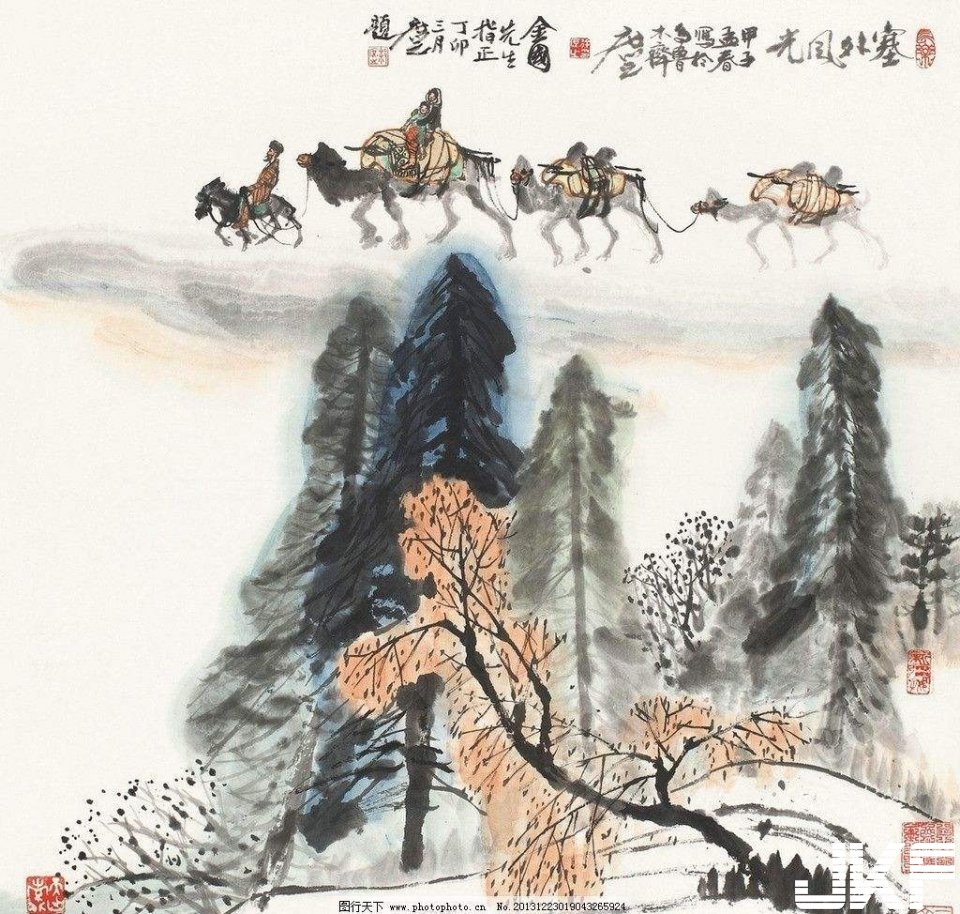 塞外风光
甲子
孟春
寫於
烏魯
木齊
金國
先生
指正
丁卯
三月
題
JKF
图行天下 www.photophoto.cn No.20131223019043265924